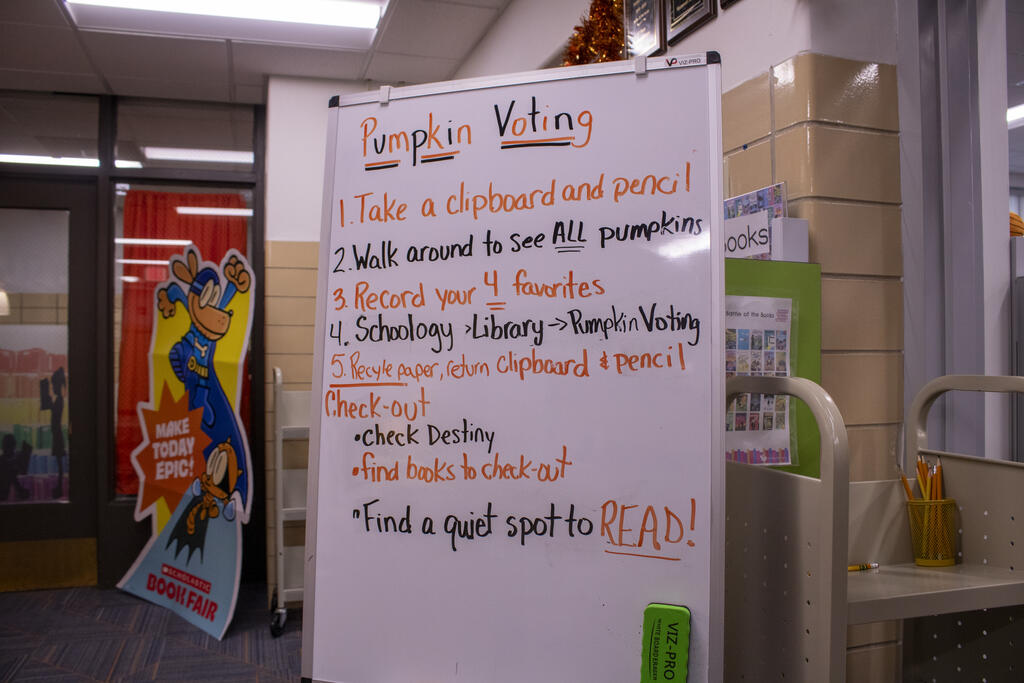 VIZ-PRO
Pumpkin Voting
1. Take a clipboard and pencil
2. Walk around to see ALL pumpkins
3. Record your 4 favorites
4. Schoology > Library → Pumpkin Voting
5. Recyle paper, return clipboard & pencil
Check-out
• check Destiny
• find books to check-out
" Find a quiet spot to READ!
VIZ-PRO
WHITE BOARD ERASER
MAKE
TODAY
EPIC!
SCHOLASTIC
BOOK FAIR
ooks
ame of the Books